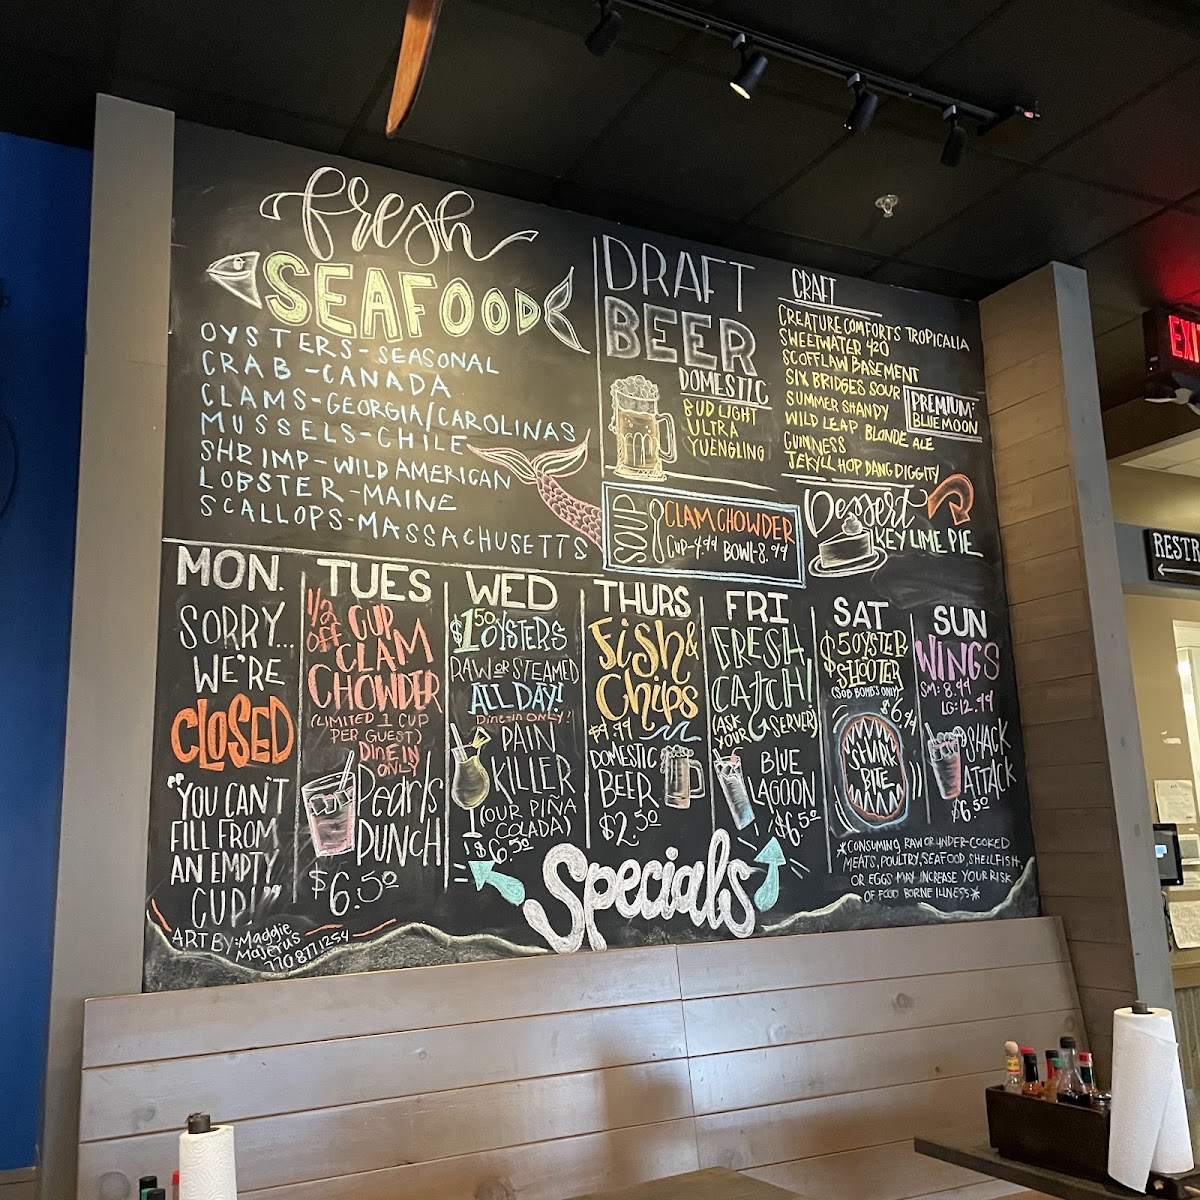 fresh
SEAFOOD
OYSTERS-SEASONAL
CRAB-CANADA
CLAMS-GEORGIA/CAROLINAS
MUSSELS-CHILE
SHRIMP-WILD AMERICAN
LOBSTER-MAINE
SCALLOPS-MASSACHUSETTS
DRAFT
BEER
DOMESTIC
BUD LIGHT
ULTRA
YUENGLING
CRAFT
CREATURE COMFORTS TROPICALIA
SWEETWATER 420
SCOFFLAW BASEMENT
SIX BRIDGES SOUR
SUMMER SHANDY
WILD LEAP BLONDE ALE
GUINNESS
JEKYLL HOP DANG DIGGITY
PREMIUM:
BLUE MOON
SOUP
CLAM CHOWDER
CUP-4.99 BOWL-8.99
Dessert
KEY LIME PIE
MON.
SORRY...
WE'RE
CLOSED
"YOU CAN'T
FILL FROM
AN EMPTY
CUP!"
ART BY: Maggie
Majerus
770 877 1254
TUES
1/2
off
CUP
CLAM
CHOWDER
(LIMITED 1 CUP
PER GUEST)
DINE IN
ONLY
Pearls
PUNCH
$6.50
WED
$1.50 OYSTERS
RAW OR STEAMED
ALL DAY!
Dine-in ONLY!
PAIN
KILLER
(OUR PIÑA
COLADA)
$6.50
THURS
Fish &
Chips
$9.99
DOMESTIC
BEER
$2.50
FRI
FRESH
CATCH!
(ASK
YOUR SERVER)
BLUE
LAGOON
$6.50
SAT
$5 OYSTER
SHOOTER
(SOB BOMB'S ONLY)
$6.94
SHARK
BITE
SUN
WINGS
SM: 8.99
LG: 12.99
SHACK
ATTACK
$6.50
Specials
*CONSUMING RAW OR UNDER-COOKED
MEATS, POULTRY, SEAFOOD, SHELLFISH,
OR EGGS MAY INCREASE YOUR RISK
OF FOOD BORNE ILLNESS*
EXI
RESTR